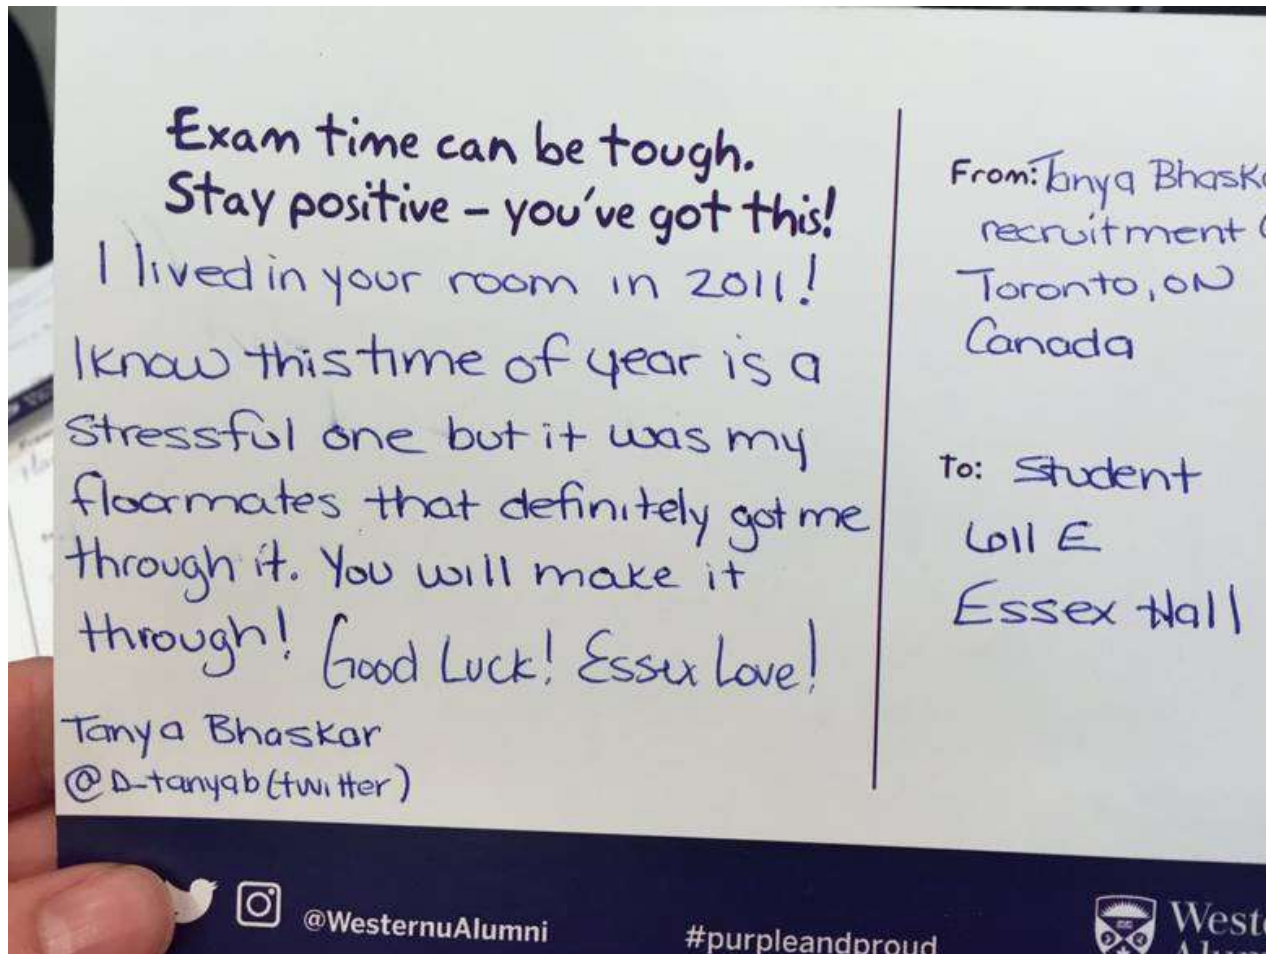 Exam time can be tough.
Stay positive – you've got this!
I lived in your room in 2011!
I know this time of year is a
stressful one but it was my
floormates that definitely got me
through it. You will make it
through! Good Luck! Essex Love!
Tanya Bhaskar
@D_tanyab (twitter)
From: Tanya Bhaska
recruitment
Toronto, ON
Canada
To: Student
611 E
Essex Hall
@WesternuAlumni
#purpleandproud
Weste
Alum